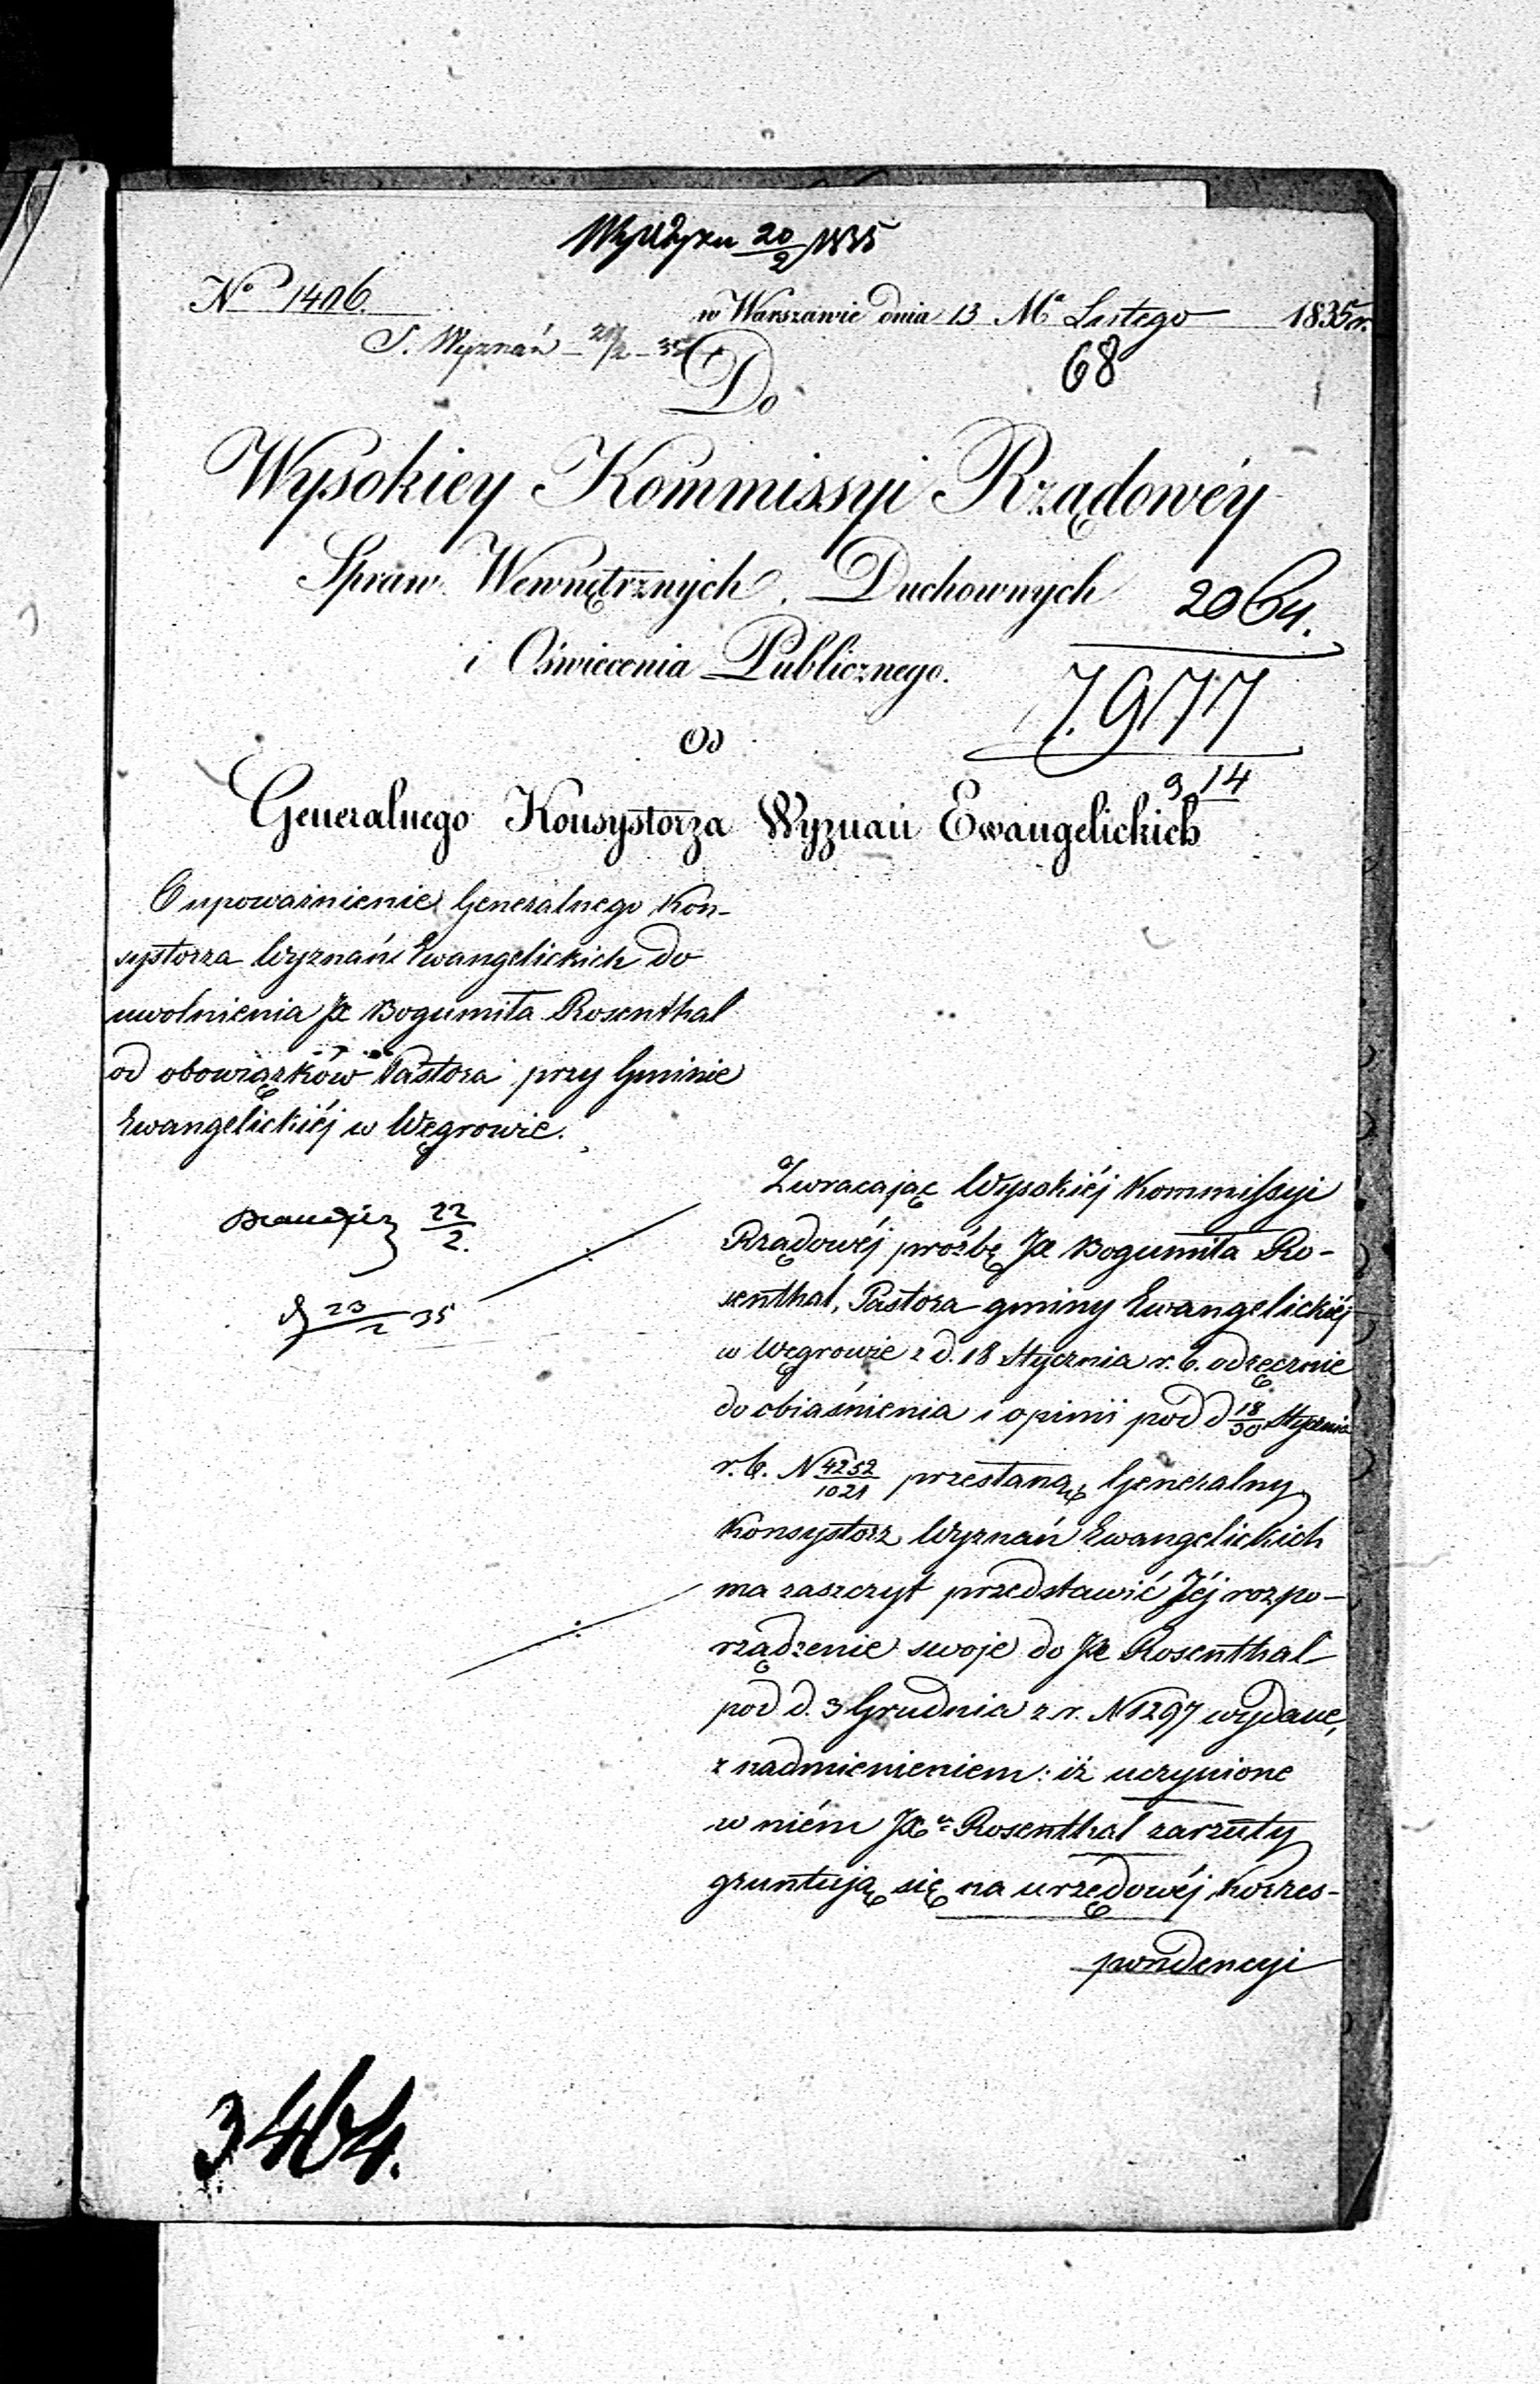 20/2 1835
No 1406.
w Warszawie dnia 13 Ma Lutego 1835 r.
S. Wyznań 35
68
Do
Wysokiey Kommissyi Rządowéy
Spraw Wewnętrznych, Duchownych
2064.
i Oświecenia Publicznego.
7.977
Od
9.14
Generalnego Konsystorza Wyznań Ewangelickich
O upoważnienie Generalnego Kon-
systorza Wyznań Ewangelickich do
uwolnienia JX Bogumiła Rosenthal
od obowiązków Pastora przy Gminie
Ewangelickiéj w Węgrowie.
22/2.
23/2 35
Zwracając Wysokiéj Kommissyi
Rządowéj prośbę JX Bogumiła Ro-
senthal, Pastora gminy Ewangelickiéj
w Węgrowie z d. 18 Stycznia r. b. odręcznie
do obiaśnienia i opinii pod d 18/30 Stycznia
r. b. N 4252/1021 przesłaną, Generalny
Konsystorz Wyznań Ewangelickich
ma zaszczyt przedstawić Jéj rozpo-
rządzenie swoje do JX Rosenthal
pod d. 3 Grudnia z. r. N 1297 wydane,
z nadmienieniem: iż uczynione
w niém JXu Rosenthal zarzuty
gruntują się na urzędowéj korres-
pondencyi
3464.